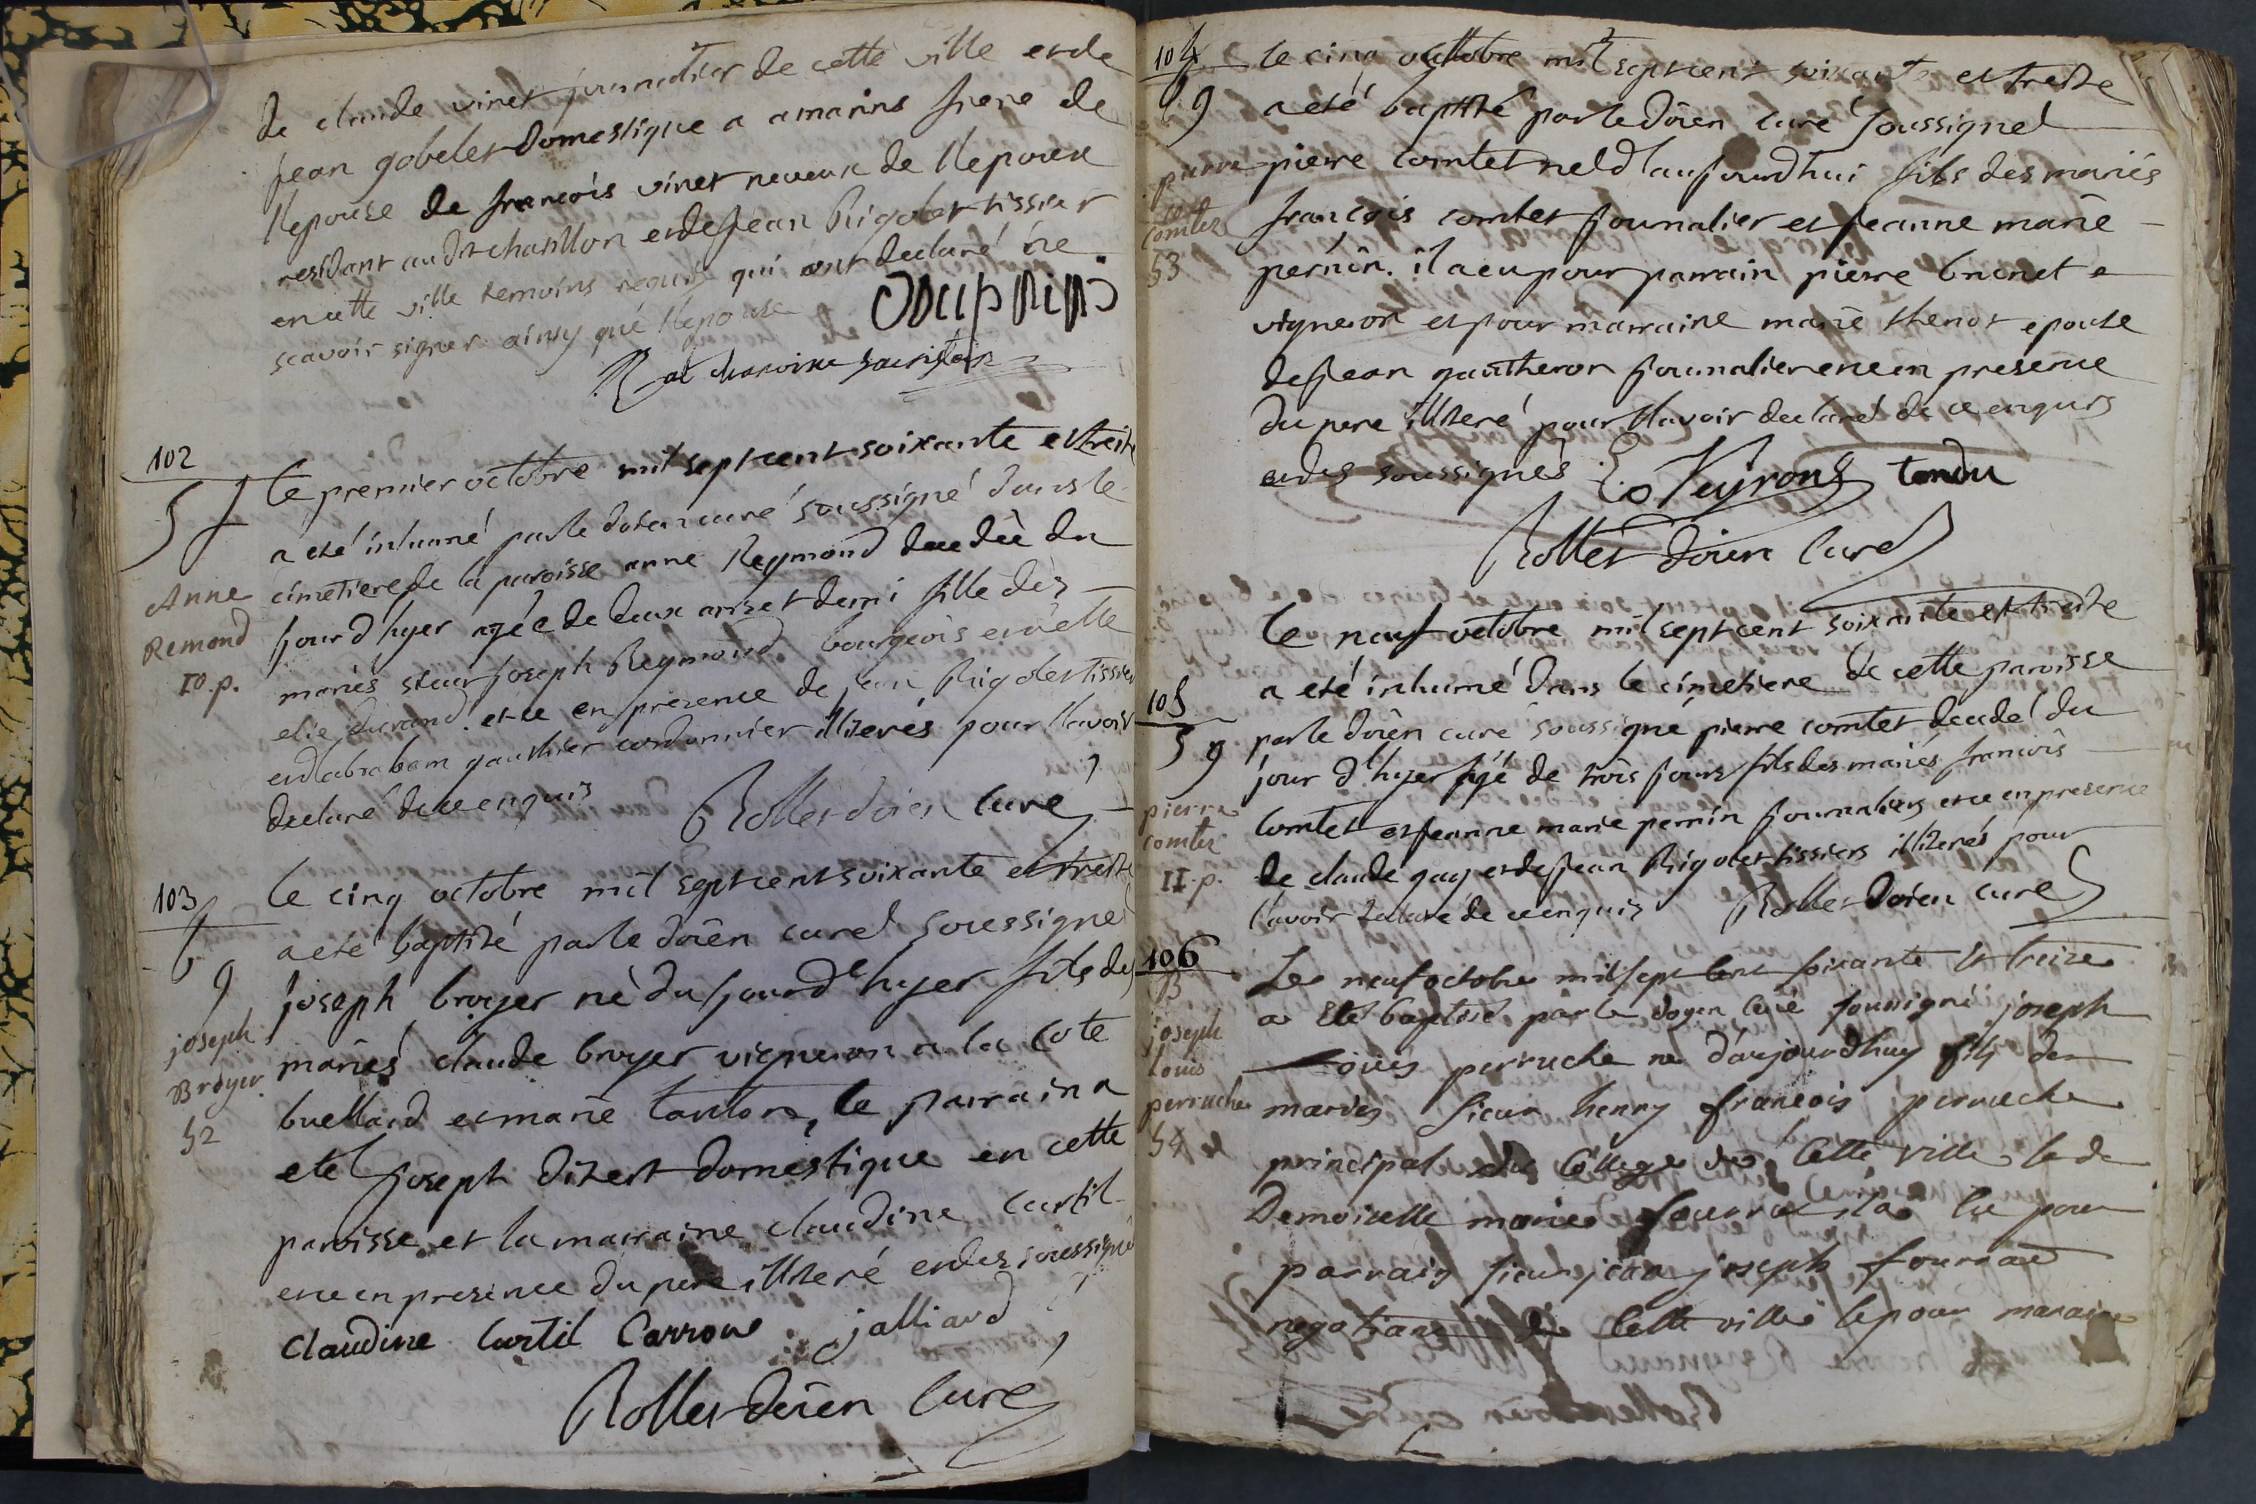 de claude vinet journalier de cette ville et de
jean gobelet Domestique a amarins frere de
l'epouse de francois vinet neveux de l'epoux
residant audit chatillon et de jean Rigolet tissier
en cette ville temoins requis qui ont declaré ne
scavoir signer ainsy que l'epouse
chanoine sacristain
102
le premier octobre mil sept cent soixante et treize
a eté inhumé par le doien curé soussigné dans le
cimetiere de la paroisse anne Reymond decedée du
jour d'hyer agée de deux ans et demi fille des
Anne
Remond
10.p.
mariés sieur joseph Reymond bourgeois en cette
durand et ce en presence de jean Rigolet tissier
et d'abraham gauthier cordonnier illiterés pour l'avoir
declaré de ce enquis Rollet doien curé
103
le cinq octobre mil sept cent soixante et treize
a eté baptisé par le doien curé soussigné
joseph broyer né du jour d'hyer fils des
joseph
Broyer.
52
mariés claude broyer vigneron a la cote
et marie le parrain a
eté joseph dizert domestique en cette
paroisse et la marraine claudine curtil
et ce en presence du pere illiteré et des soussignés
claudine curtil Carron jalliard
Rollet doien curé
104
le cinq octobre mil sept cent soixante et treize
a eté baptisé par le doien curé soussigné
pierre comtet né d'aujourdhui fils des mariés
pierre
comtet
53
francois comtet journalier et jeanne marie
perrin. il a eu pour parrain pierre brunet
vigneron et pour marraine marie thenot epouse
de jean gautheron journalier et ce en presence
du pere illiteré pour l'avoir declaré de ce enquis
et des soussignés Veyron tondu
Rollet doien curé
105
le neuf octobre mil sept cent soixante et treize
a eté inhumé dans le cimetiere de cette paroisse
par le doien curé soussigné pierre comtet decedé du
jour d'hyer agé de trois jours fils des mariés francois
pierre
comtet
11.p.
comtet et jeanne marie perrin journaliers et ce en presence
de claude guy et de jean Rigolet tissiers illiterés pour
l'avoir declaré de ce enquis Rollet Doien curé
106
B
joseph
louis
perruche
54
Le neuf octobre mil sept cent soixante et treize
a eté baptisé par le doyen curé soussigné joseph
Louis perruche né d'aujourdhuy fils des
mariés sieur henry francois perruche
principal du College de cette ville et de
Demoiselle marie fourrat il a eu pour
parrain sieur jean joseph fourrat
negotiant de cette ville et pour maraine